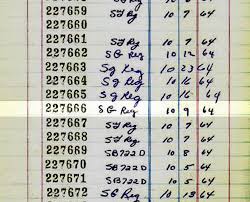 227659 SJ Reg 10 7 64
227660
227661 SJ Reg 10 7 64
227662 SG Reg 10 12 64
227663 Sg Reg 10 23 64
227664 Sg Reg 10 16 64
227665 SG Reg 10 16 64
227666 SG Reg 10 9 64
227667 SJ Reg 10 7 64
227668 SJ Reg 10 7 64
227669 SB722D 10 8 64
227670 SB722D 10 5 64
227671 SB722D 10 8 64
227672 SG Reg 10 13 64